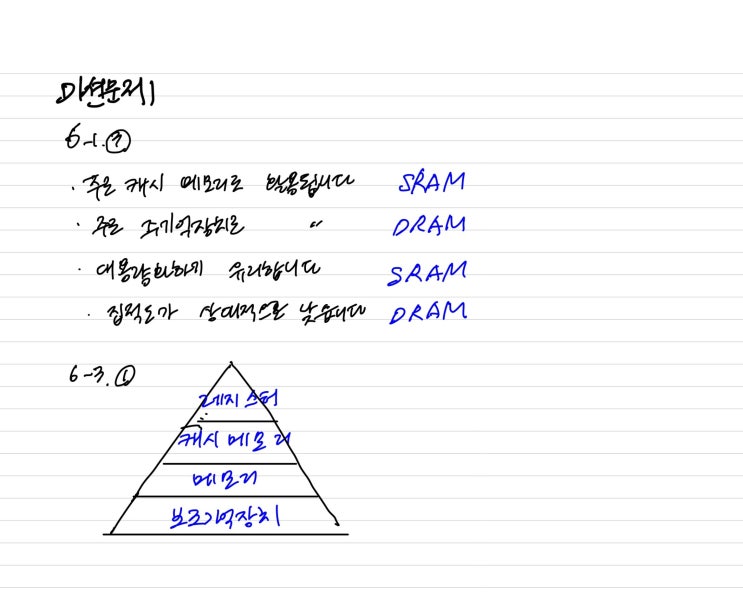 미션문제1
6-1. ③
· 주로 캐시 메모리로 활용됩니다 SRAM
· 주로 주기억장치로 〃 DRAM
· 대용량화하기 유리합니다 SRAM
· 집적도가 상대적으로 낮습니다 DRAM
6-3. ①
레지스터
캐시 메모리
메모리
보조기억장치